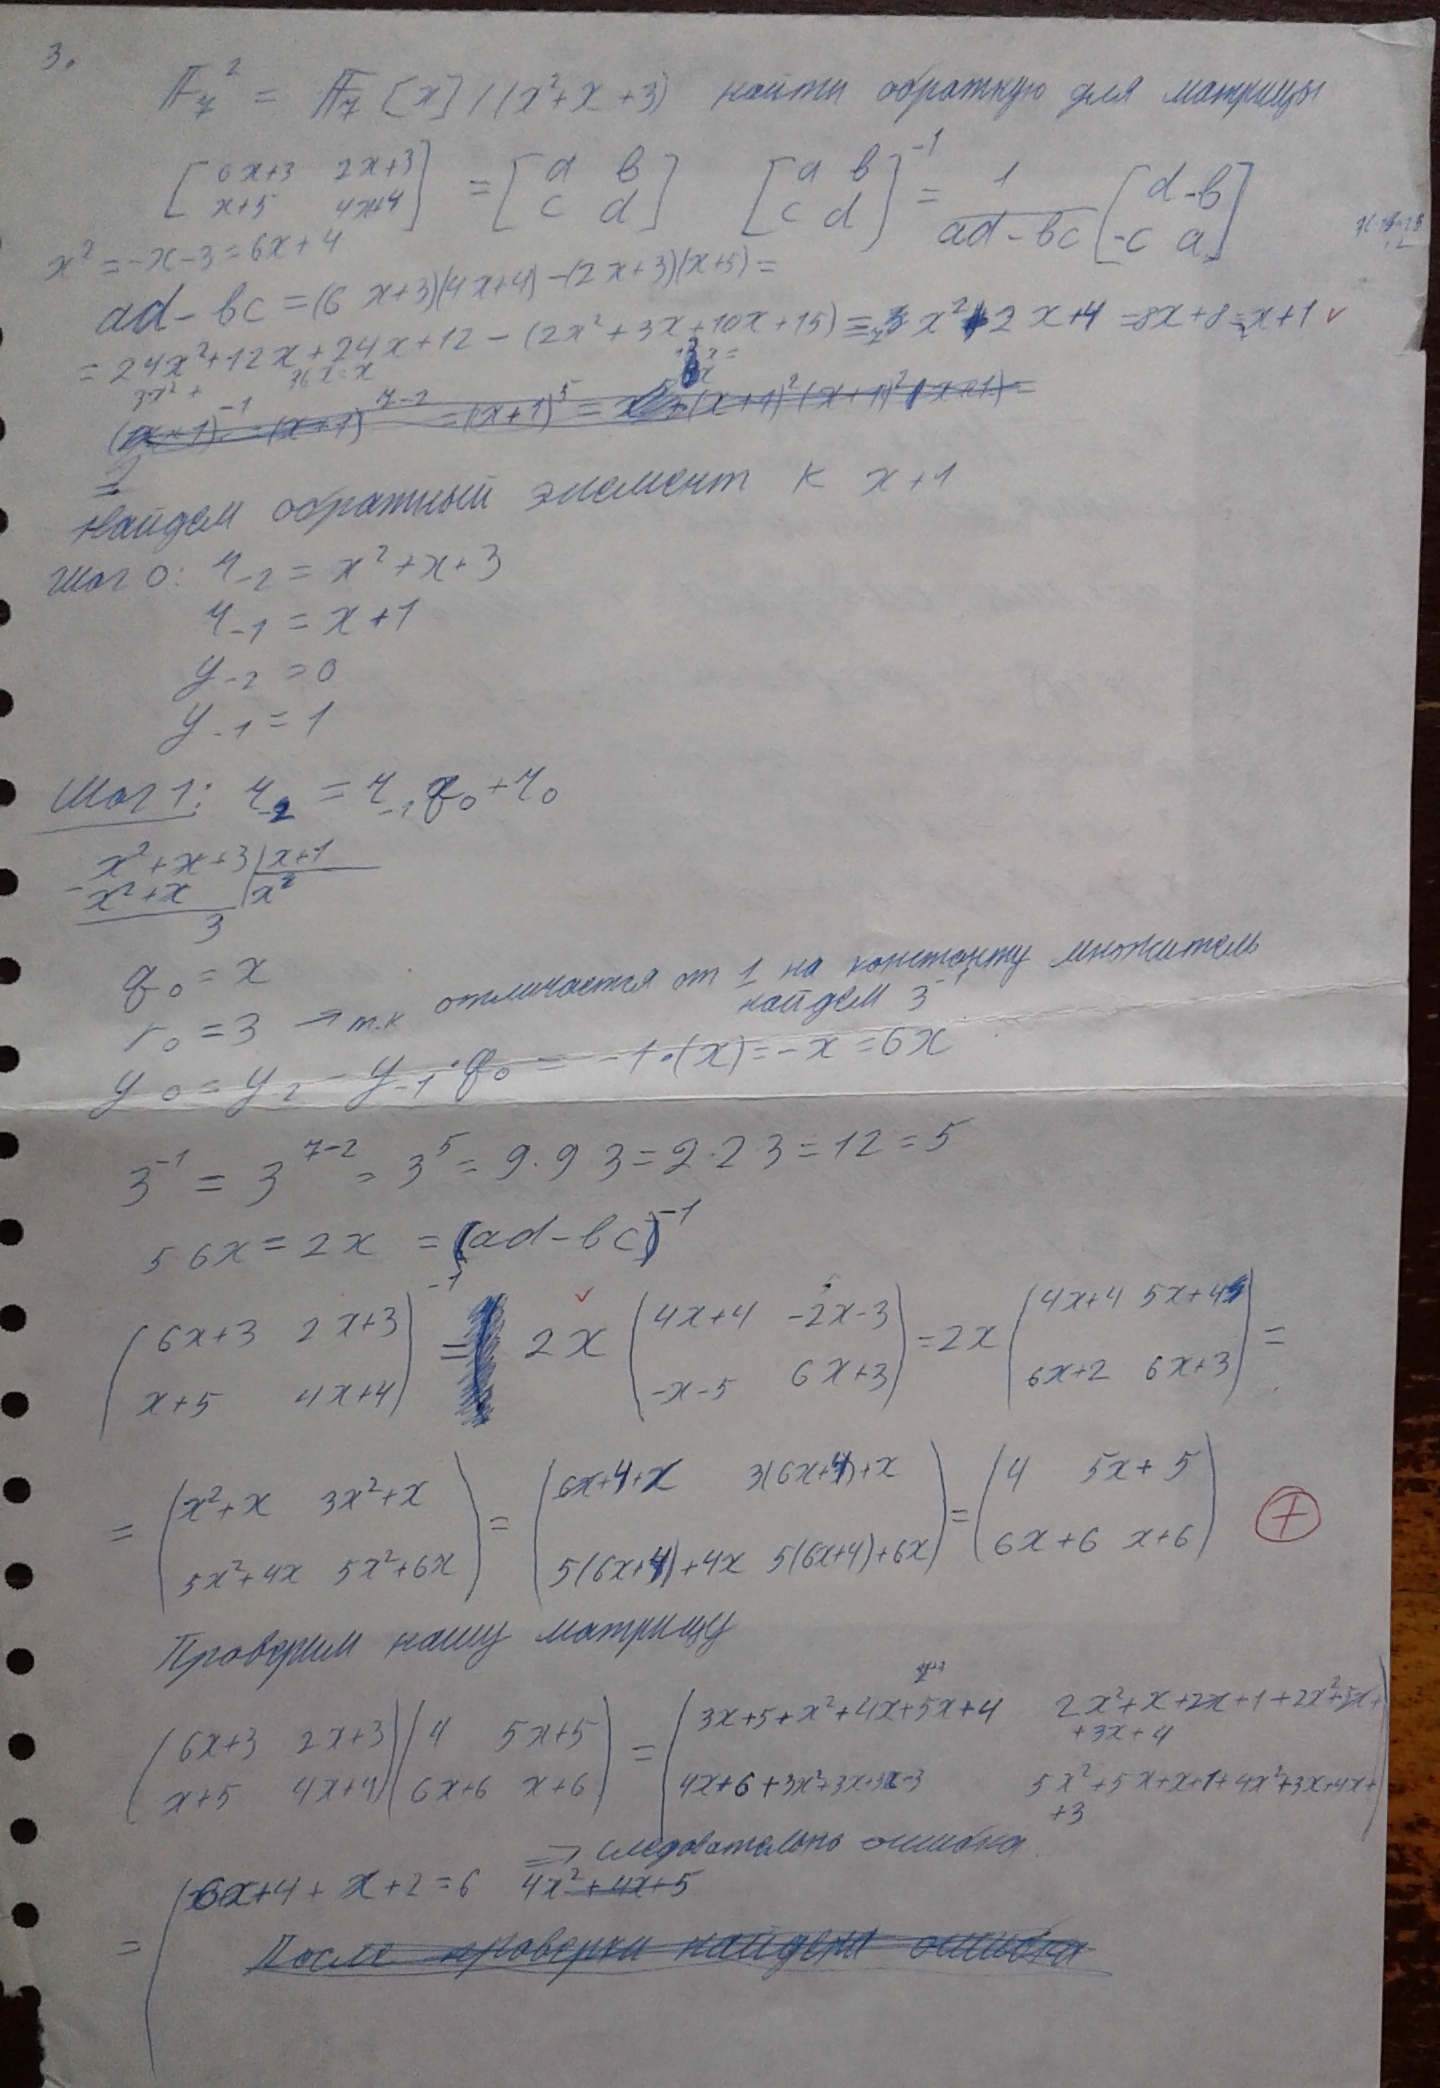 3.
F₇² = F₇[x]/(x²+x+3) найти обратную для матрицы
[6x+3 2x+3; x+5 4x+4] = [a b; c d] [a b; c d]⁻¹ = 1/(ad-bc) [d -b; -c a]
x² = -x-3 = 6x+4
ad-bc = (6x+3)(4x+4)-(2x+3)(x+5) =
= 24x²+12x+24x+12-(2x²+3x+10x+15) = x² 2x+4 = 8x+8 = x+1 ✓
3x²+ 36x=x
(x+1)⁻¹ = (x+1)⁷⁻² = (x+1)⁵ = (x+1)²(x+1)²(x+1) =
Найдем обратный элемент к x+1
Шаг 0: r₋₂ = x²+x+3
r₋₁ = x+1
y₋₂ = 0
y₋₁ = 1
Шаг 1: r₋₂ = r₋₁q₀+r₀
x²+x+3 | x+1
-x²+x | x²
3
q₀ = x
r₀ = 3 → т.к отличается от 1 на константу множитель
найдем 3⁻¹
y₀ = y₋₂ - y₋₁·q₀ = -1·(x) = -x = 6x
3⁻¹ = 3⁷⁻² = 3⁵ = 9·9 3 = 2·2·3 = 12 = 5
5·6x = 2x = (ad-bc)⁻¹
(6x+3 2x+3; x+5 4x+4)⁻¹ = 2x (4x+4 -2x-3; -x-5 6x+3) = 2x (4x+4 5x+4; 6x+2 6x+3) =
= (x²+x 3x²+x; 5x²+4x 5x²+6x) = (6x+4+x 3(6x+4)+x; 5(6x+4)+4x 5(6x+4)+6x) = (4 5x+5; 6x+6 x+6) +
Проверим нашу матрицу
(6x+3 2x+3; x+5 4x+4)(4 5x+5; 6x+6 x+6) = (3x+5+x²+4x+5x+4 2x²+x+2x+1+2x²+5x+ +3x+4; 4x+6+3x²+3x+3x+3 5x²+5x+x+1+4x²+3x+4x+ +3)
=> следовательно ошибка
= (6x+4+x+2=6 4x²+4x+5
После проверки найдена ошибка